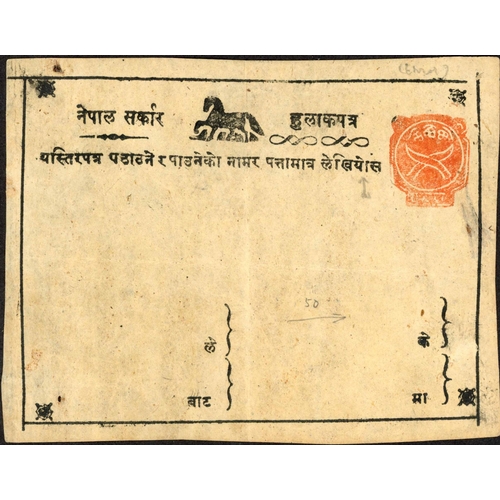 नेपाल सर्कार हुलाकपत्र
यस्तिरपत्र पठाउने र पाउनेको नामर पत्तामात्र लेखियोस
50
ले
बाट
मा